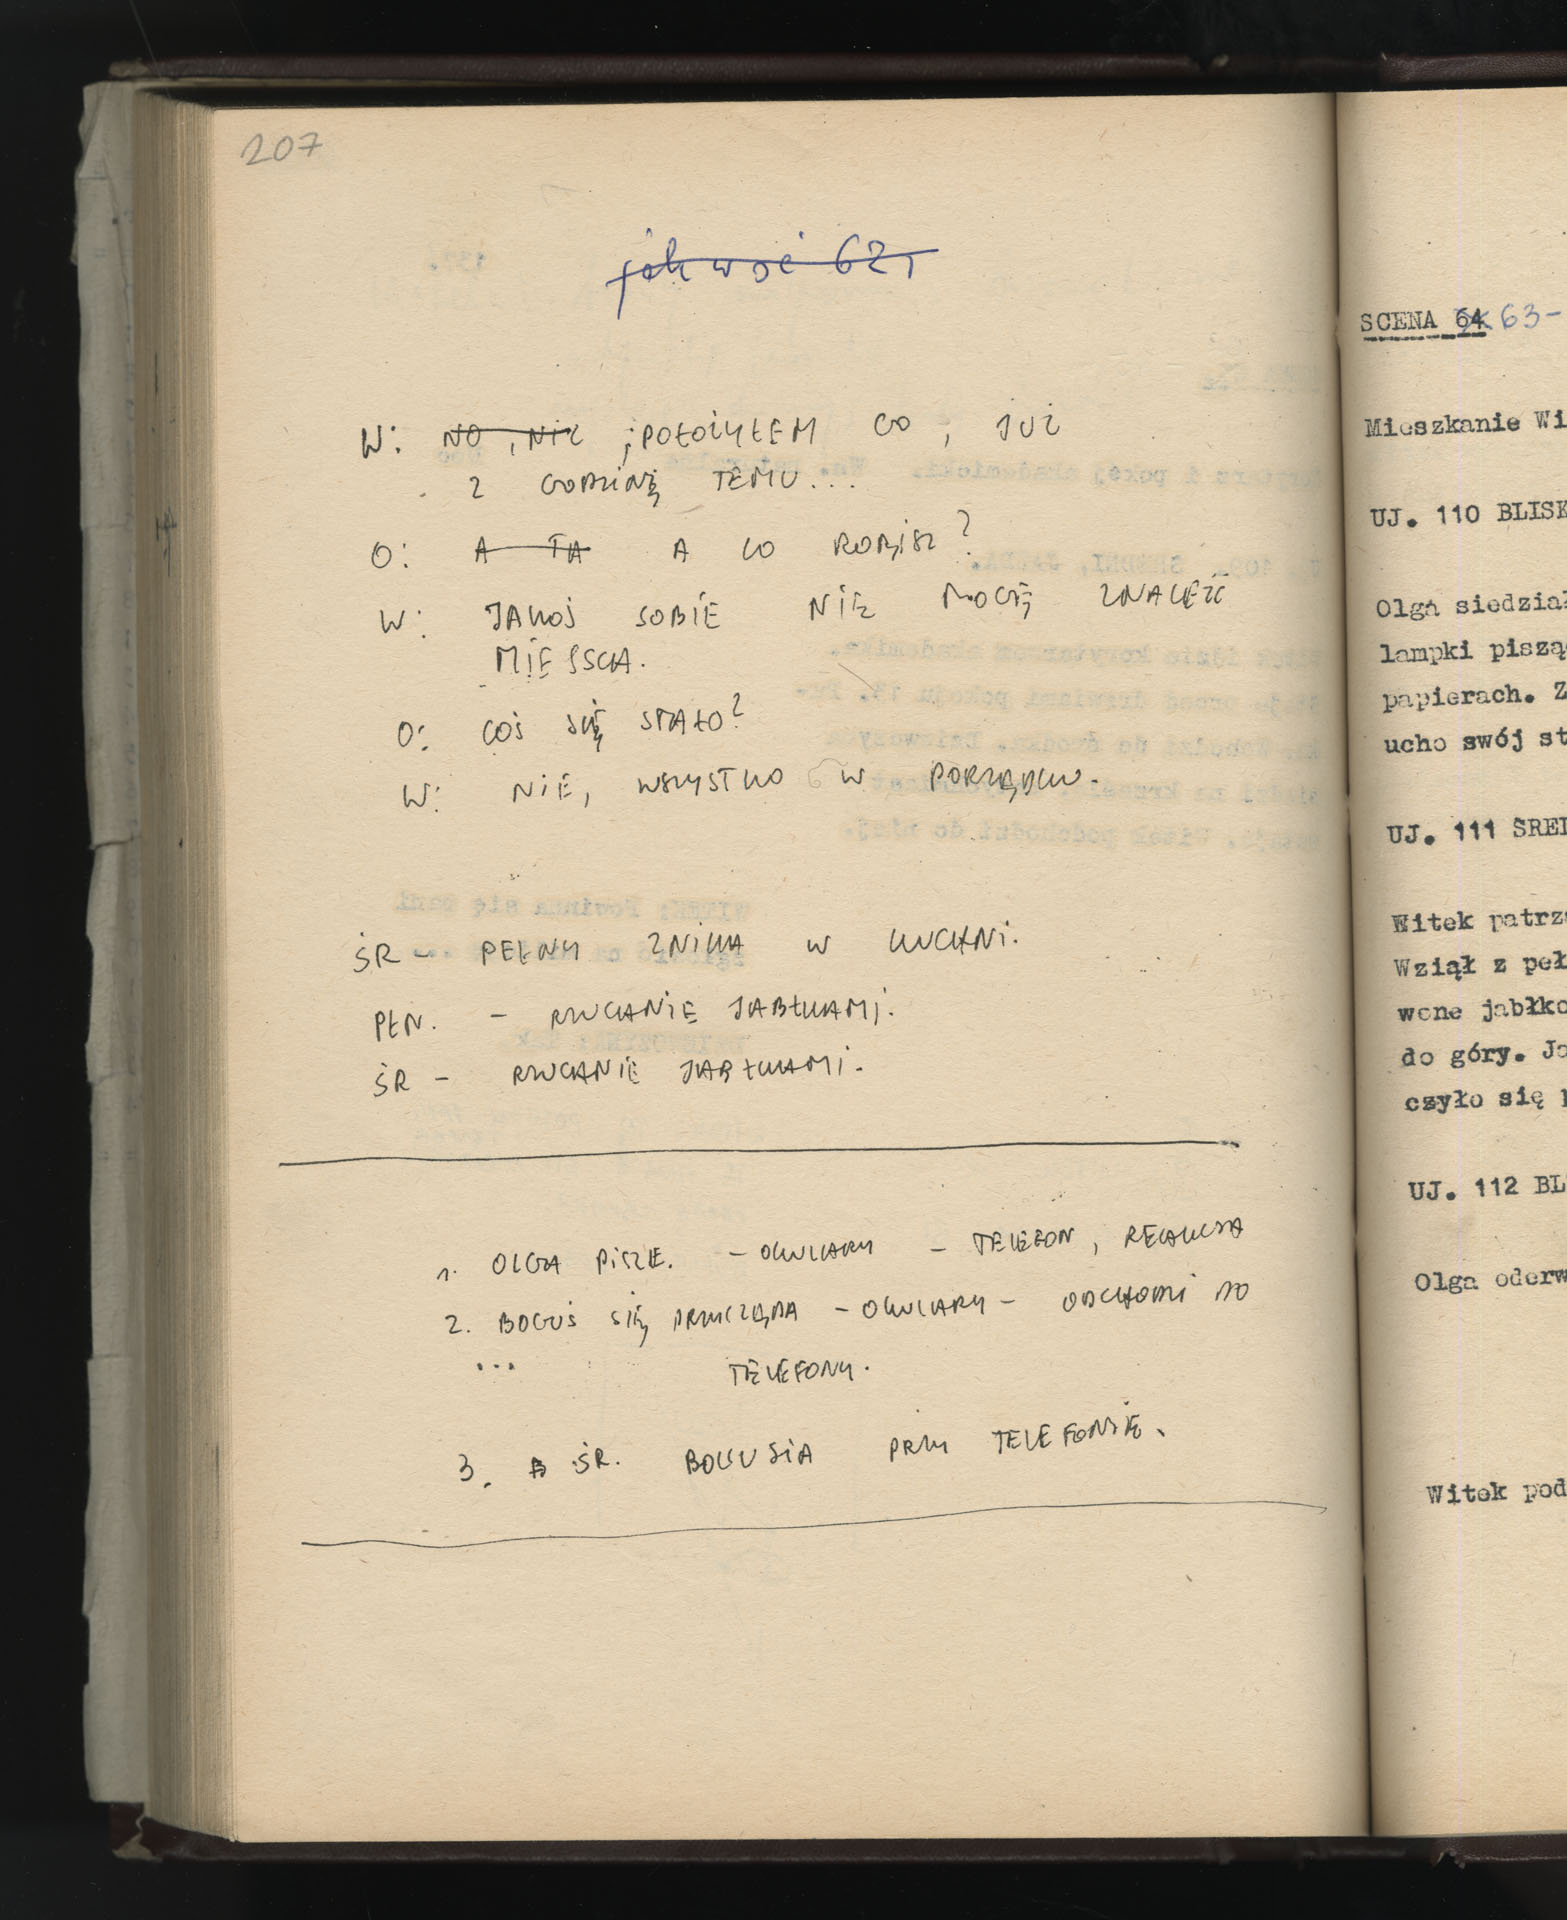 207
jak w sc 62,
W: NO, NIC ; POŁOŻYŁEM GO, JUŻ
Z GODZINĘ TEMU...
O: A TA A CO ROBISZ?
W: JAKOŚ SOBIE NIE MOGĘ ZNALEŹĆ
MIEJSCA.
O: COŚ SIĘ STAŁO?
W: NIE, WSZYSTKO W PORZĄDKU.
ŚR - PEŁNY ZNIKA W KUCHNI.
PŁN. - RZUCANIE JABŁKAMI.
ŚR - RZUCANIE JABŁKAMI.
1. OLGA PISZE. - OKULARY - TELEFON, REAKCJA
2. BOGUŚ SIĘ PRZYGLĄDA - OKULARY - ODCHODZI DO
... TELEFONU.
3. B ŚR. BOGUSIA PRZY TELEFONIE.
SCENA 64 63-
Mieszkanie Wi
UJ. 110 BLISK
Olga siedział
lampki pisząc
papierach. Z
ucho swój st
UJ. 111 ŚRED
Witek patrz
Wziął z peł
wone jabłko
do góry. Ja
czyło się p
UJ. 112 BL
Olga oderw
Witek pod